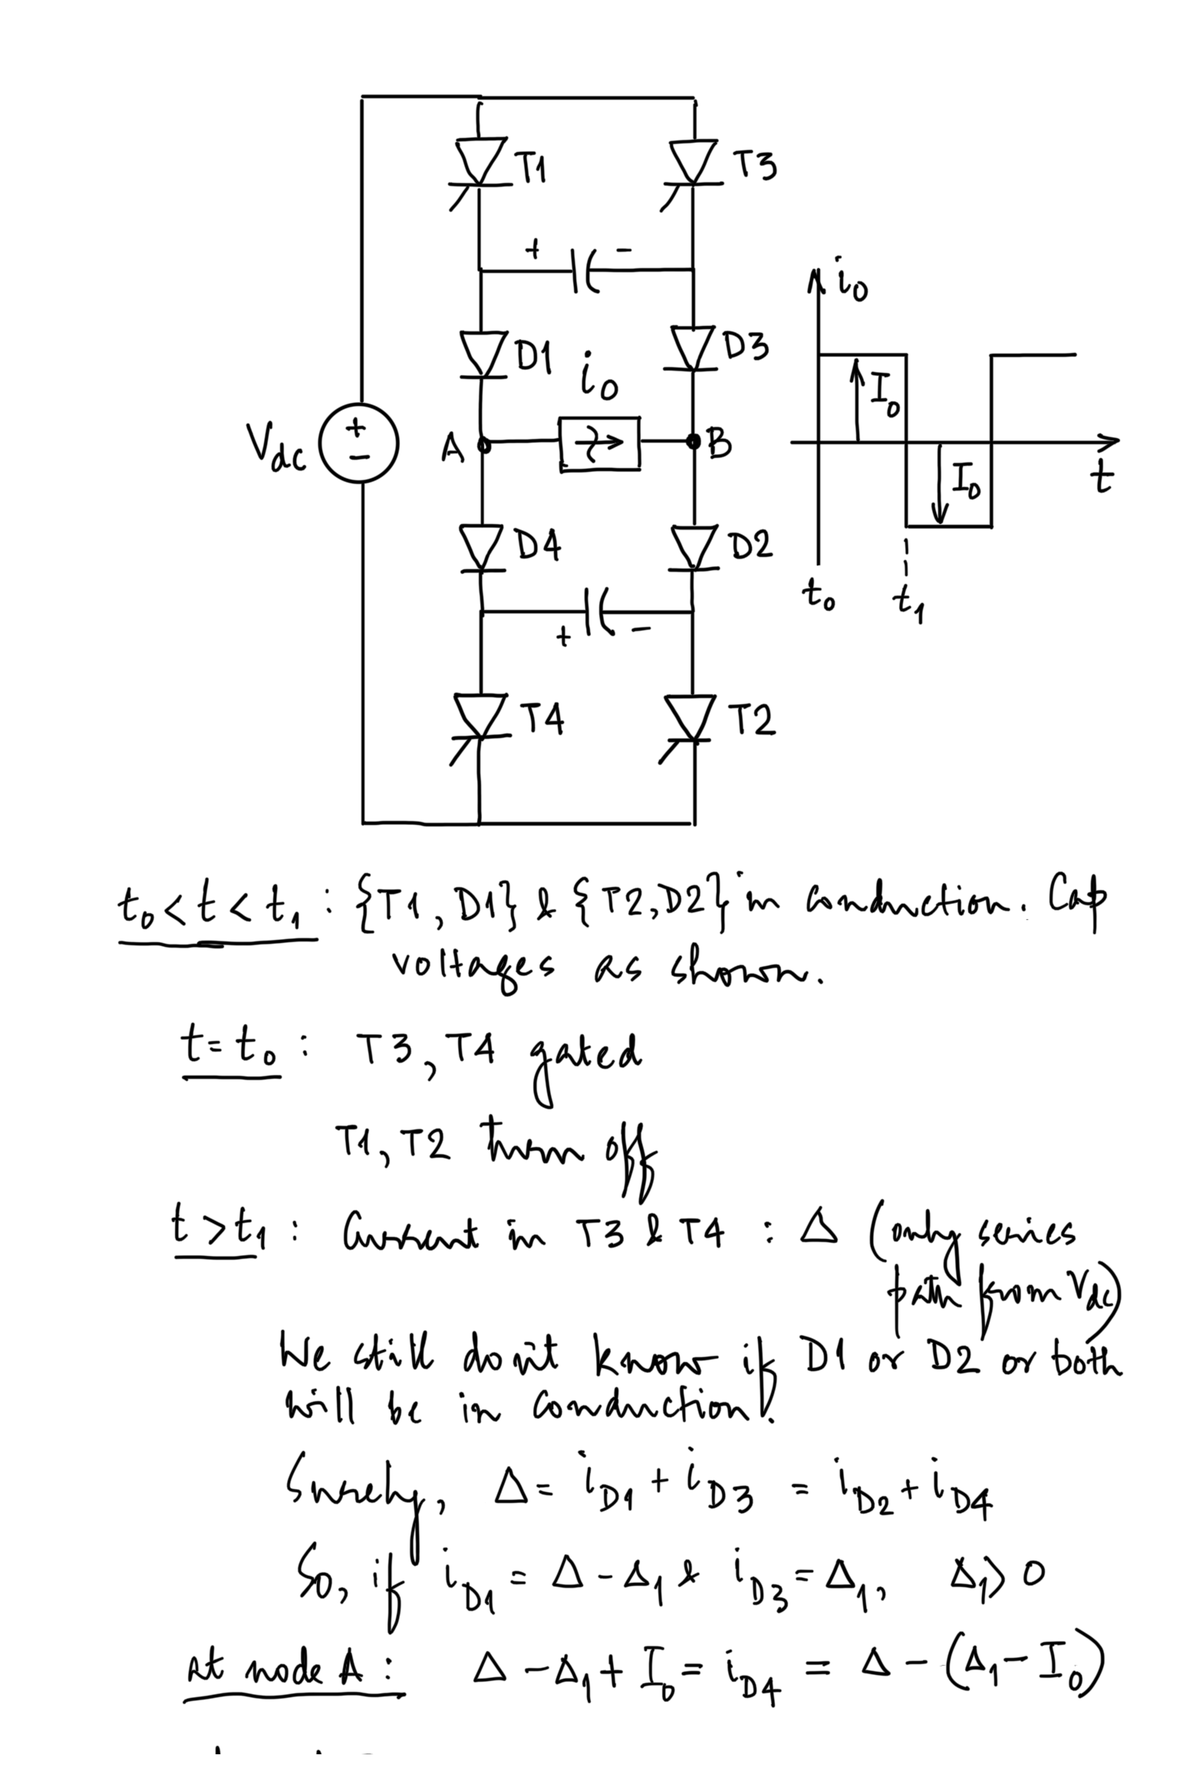 T1
T3
+ -
i₀
D1
D3
i₀
I₀
Vdc
+
-
A
B
I₀
t
D4
D2
t₀
t₁
+ -
T4
T2
t₀ < t < t₁ : {T1, D1} & {T2, D2} in conduction. Cap
voltages as shown.
t = t₀ : T3, T4 gated
T1, T2 turn off
t > t₁ : Current in T3 & T4 : Δ (only series
path from Vdc)
We still don't know if D1 or D2 or both
will be in conduction!
Surely, Δ = iD1 + iD3 = iD2 + iD4
So, if iD1 = Δ - Δ₁ & iD3 = Δ₁, Δ₁ > 0
At node A : Δ - Δ₁ + I₀ = iD4 = Δ - (Δ₁ - I₀)